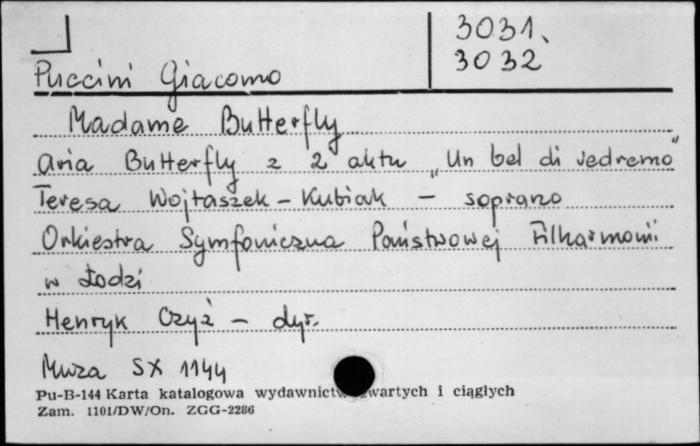 3031.
3032
Puccini Giacomo
Madame Butterfly
Aria Butterfly z 2 aktu „Un bel di vedremo"
Teresa Wojtaszek-Kubiak - sopran
Orkiestra Symfoniczna Państwowej Filharmonii
w Łodzi
Henryk Czyż - dyr.
Muza SX 1144
Pu-B-144 Karta katalogowa wydawnictw zwartych i ciągłych
Zam. 1101/DW/On. ZGG-2286